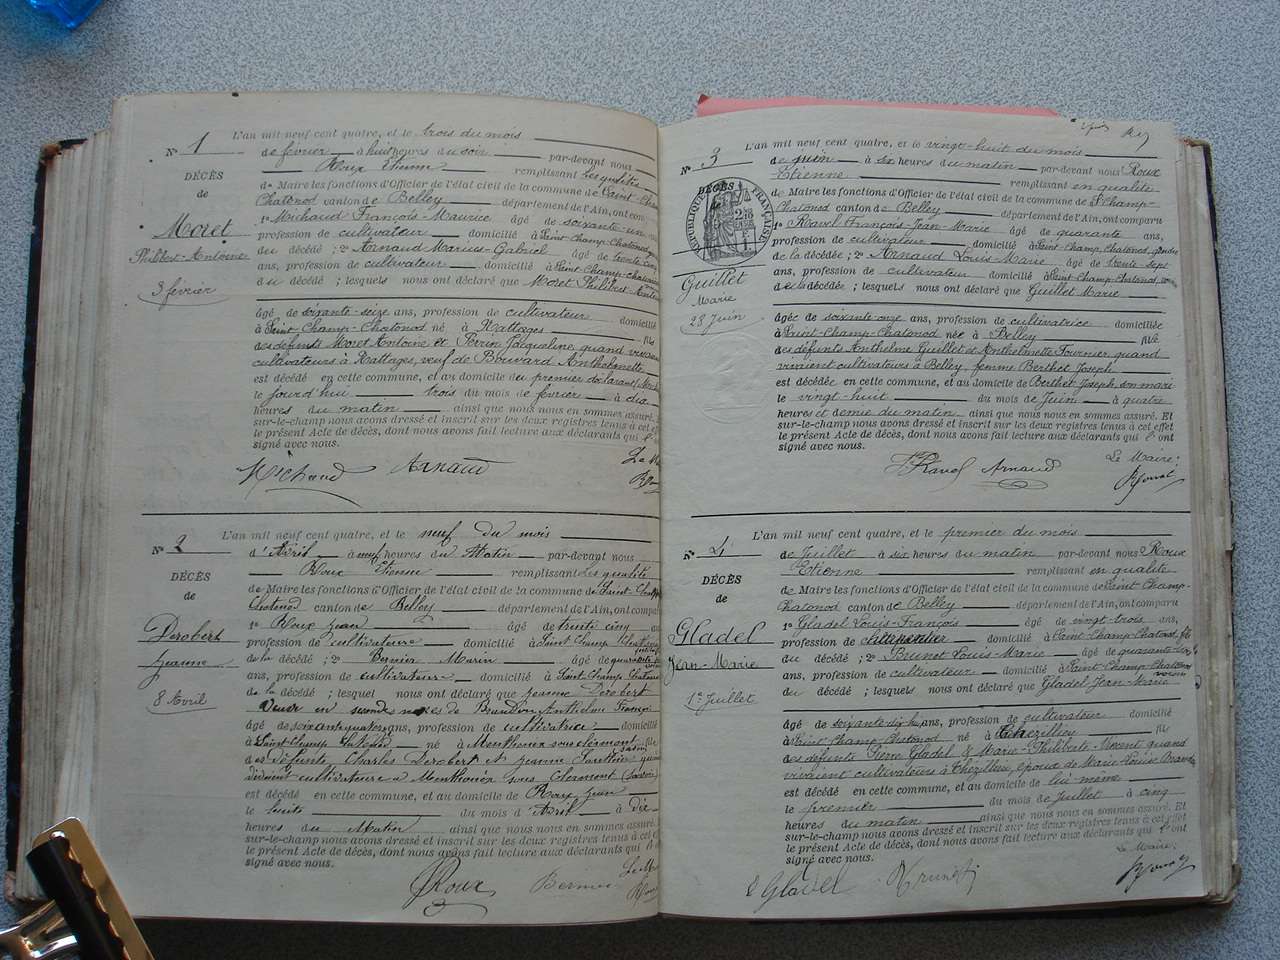 L'an mil neuf cent quatre, et le trois du mois
N° 1
de février à huit heures du soir par-devant nous
Roux Etienne remplissant les qualités
DÉCÈS
de
de Maire les fonctions d'Officier de l'état civil de la commune de Saint-Champ
Chatonod canton de Belley département de l'Ain, ont com
Moret
Philibert-Antoine
3 février
1° Michaud François-Maurice âgé de soixante-un
profession de cultivateur domicilié à Saint-Champ-Chatonod
du décédé ; 2° Arnaud Marius-Gabriel âgé de trente cinq
ans, profession de cultivateur domicilié à Saint-Champ-Chatonod
du décédé ; lesquels nous ont déclaré que Moret Philibert Antoine
âgé de soixante-seize ans, profession de cultivateur domicilié
à Saint-Champ-Chatonod né à Nattages fils
des défunts Moret Antoine et Perrin Jacqueline quand vivaient
cultivateurs à Nattages, veuf de Bouvard Anthelmette
est décédé en cette commune, et au domicile du premier déclarant
le jourd'hui trois du mois de février à dix
heures du matin ainsi que nous nous en sommes assuré.
sur-le-champ nous avons dressé et inscrit sur les deux registres tenus à cet ef
le présent Acte de décès, dont nous avons fait lecture aux déclarants qui l'
signé avec nous.
Michaud Arnaud Le M
L'an mil neuf cent quatre, et le neuf du mois
N° 2
d'Avril à neuf heures du Matin par-devant nous
Roux Etienne remplissant les qualité
DÉCÈS
de
de Maire les fonctions d'Officier de l'état civil de la commune de Saint-Champ
Chatonod canton de Belley département de l'Ain, ont comparu
Derobert
Jeanne
8 Avril
1° Roux Jean âgé de trente cinq ans
profession de cultivateur domicilié à Saint Champ Chatonod
de la décédé ; 2° Bernier Marin âgé de quarante
ans, profession de cultivateur domicilié à Saint-Champ Chatonod
de la décédé ; lesquel nous ont déclaré que Jeanne Derobert
Veuve en secondes noces de Brandin Anthelme François
âgé de soixante quatre ans, profession de cultivatrice domicilié
à Saint-Champ Chatonod né à Menthonex sous clermont fille
des défunts Charles Derobert et Jeanne quand
vivaient cultivateurs à Menthonex sous Clermont (Savoie)
est décédé en cette commune, et au domicile de Roux Jean
le huit du mois d'Avril à dix
heures du Matin ainsi que nous nous en sommes assuré.
sur-le-champ nous avons dressé et inscrit sur les deux registres tenus à cet effet
le présent Acte de décès, dont nous avons fait lecture aux déclarants qui
signé avec nous.
J Roux Bernier Le M
L'an mil neuf cent quatre, et le vingt-huit du mois
N° 3
de juin à six heures du matin par-devant nous Roux
Etienne remplissant en qualité
DÉCÈS
RÉPUBLIQUE FRANÇAISE
de Maire les fonctions d'Officier de l'état civil de la commune de St Champ-
Chatonod canton de Belley département de l'Ain, ont comparu
1° Ravel François-Jean-Marie âgé de quarante ans,
profession de cultivateur domicilié à Saint-Champ-Chatonod, gendre
de la décédée ; 2° Arnaud Louis Marie âgé de trente sept
ans, profession de cultivateur domicilié à Saint-Champ-Chatonod,
de la décédée ; lesquels nous ont déclaré que Guillet Marie
Guillet
Marie
28 Juin
âgée de soixante-onze ans, profession de cultivatrice domiciliée
à Saint-Champ-Chatonod née à Belley fille
des défunts Anthelme Guillet et Anthelmette Fournier quand
vivaient cultivateurs à Belley, femme Berthet Joseph
est décédée en cette commune, et au domicile de Berthet Joseph son mari
le vingt-huit du mois de Juin à quatre
heures et demie du matin ainsi que nous nous en sommes assuré. Et
sur-le-champ nous avons dressé et inscrit sur les deux registres tenus à cet effet
le présent Acte de décès, dont nous avons fait lecture aux déclarants qui l'ont
signé avec nous.
Ravel Arnaud Le Maire:
L'an mil neuf cent quatre, et le premier du mois
N° 4
de Juillet à six heures du matin par-devant nous Roux
Etienne remplissant en qualité
DÉCÈS
de
de Maire les fonctions d'Officier de l'état civil de la commune de Saint-Champ-
Chatonod canton de Belley département de l'Ain, ont comparu
Gladel
Jean-Marie
1er Juillet
1° Gladel Louis-François âgé de vingt-trois ans,
profession de domicilié à Saint-Champ-Chatonod, fils
du décédé ; 2° Brunet Louis-Marie âgé de quarante-six
ans, profession de cultivateur domicilié à Saint-Champ-Chatonod
voisin
du décédé ; lesquels nous ont déclaré que Gladel Jean-Marie
âgé de soixante-dix ans, profession de cultivateur domicilié
à Saint-Champ-Chatonod né à Thézillieu fils
des défunts Pierre Gladel & Marie-Philiberte quand
vivaient cultivateurs à Thézillieu, époux de Marie Louise
est décédé en cette commune, et au domicile de lui même
le premier du mois de Juillet à cinq
heures du matin ainsi que nous nous en sommes assuré. Et
sur-le-champ nous avons dressé et inscrit sur les deux registres tenus à cet effet
le présent Acte de décès, dont nous avons fait lecture aux déclarants qui l'ont
signé avec nous.
Le Maire:
L Gladel Brunet